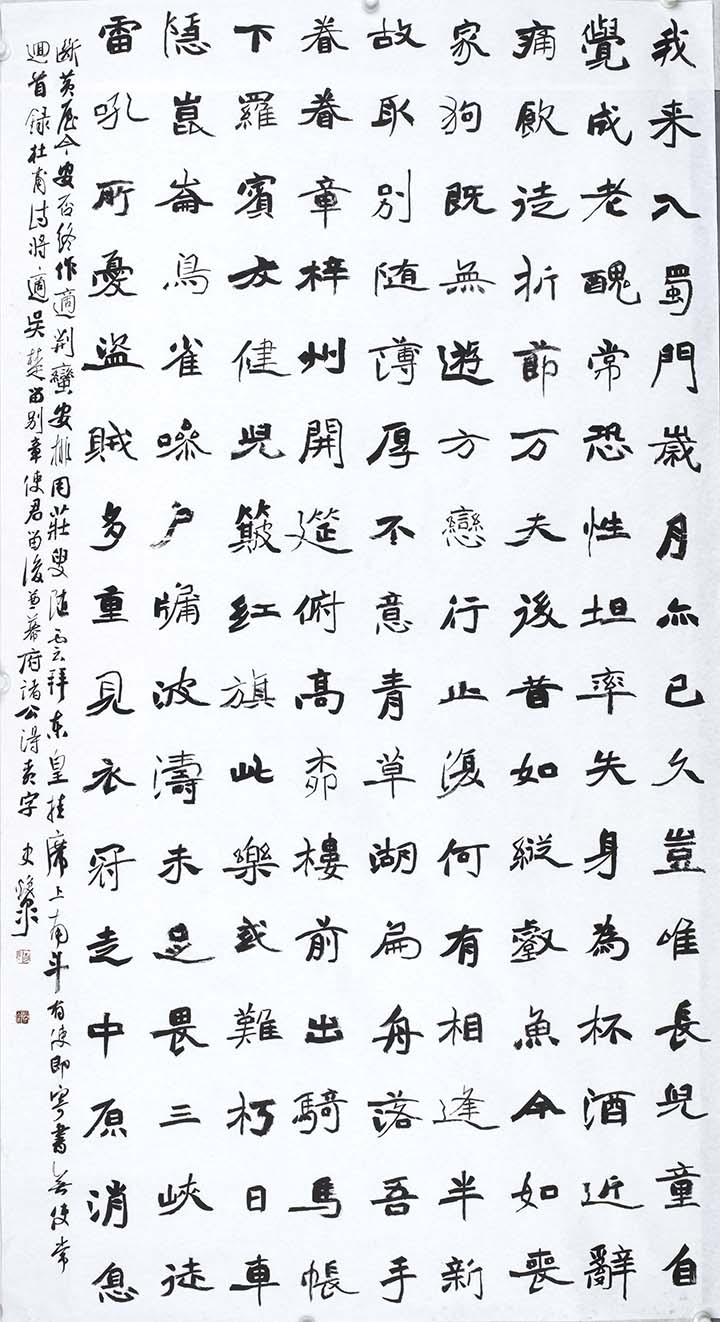 我来入蜀門歲月亦已久豈唯長兒童自
覺成老醜常恐性坦率失身為杯酒近辭
痛飲徒折節万夫後昔如縱壑魚今如喪
家狗既無遊方戀行止復何有相逢半新
故取別随薄厚不意青草湖扁舟落吾手
眷眷章梓州開筵俯高桺樓前出騎馬帳
下羅賓友健兒簸紅旗此樂或難朽日車
隱崑崙鳥雀噪户牖波濤未足畏三峽徒
雷吼所憂盜賊多重見衣冠走中原消息
断黄屋今安否終作適荆蠻安排用莊叟随雲拜東皇挂席上南斗有使即寄書無使常
迴首録杜甫诗将適吴楚留别章使君留後兼幕府諸公得柳字 史